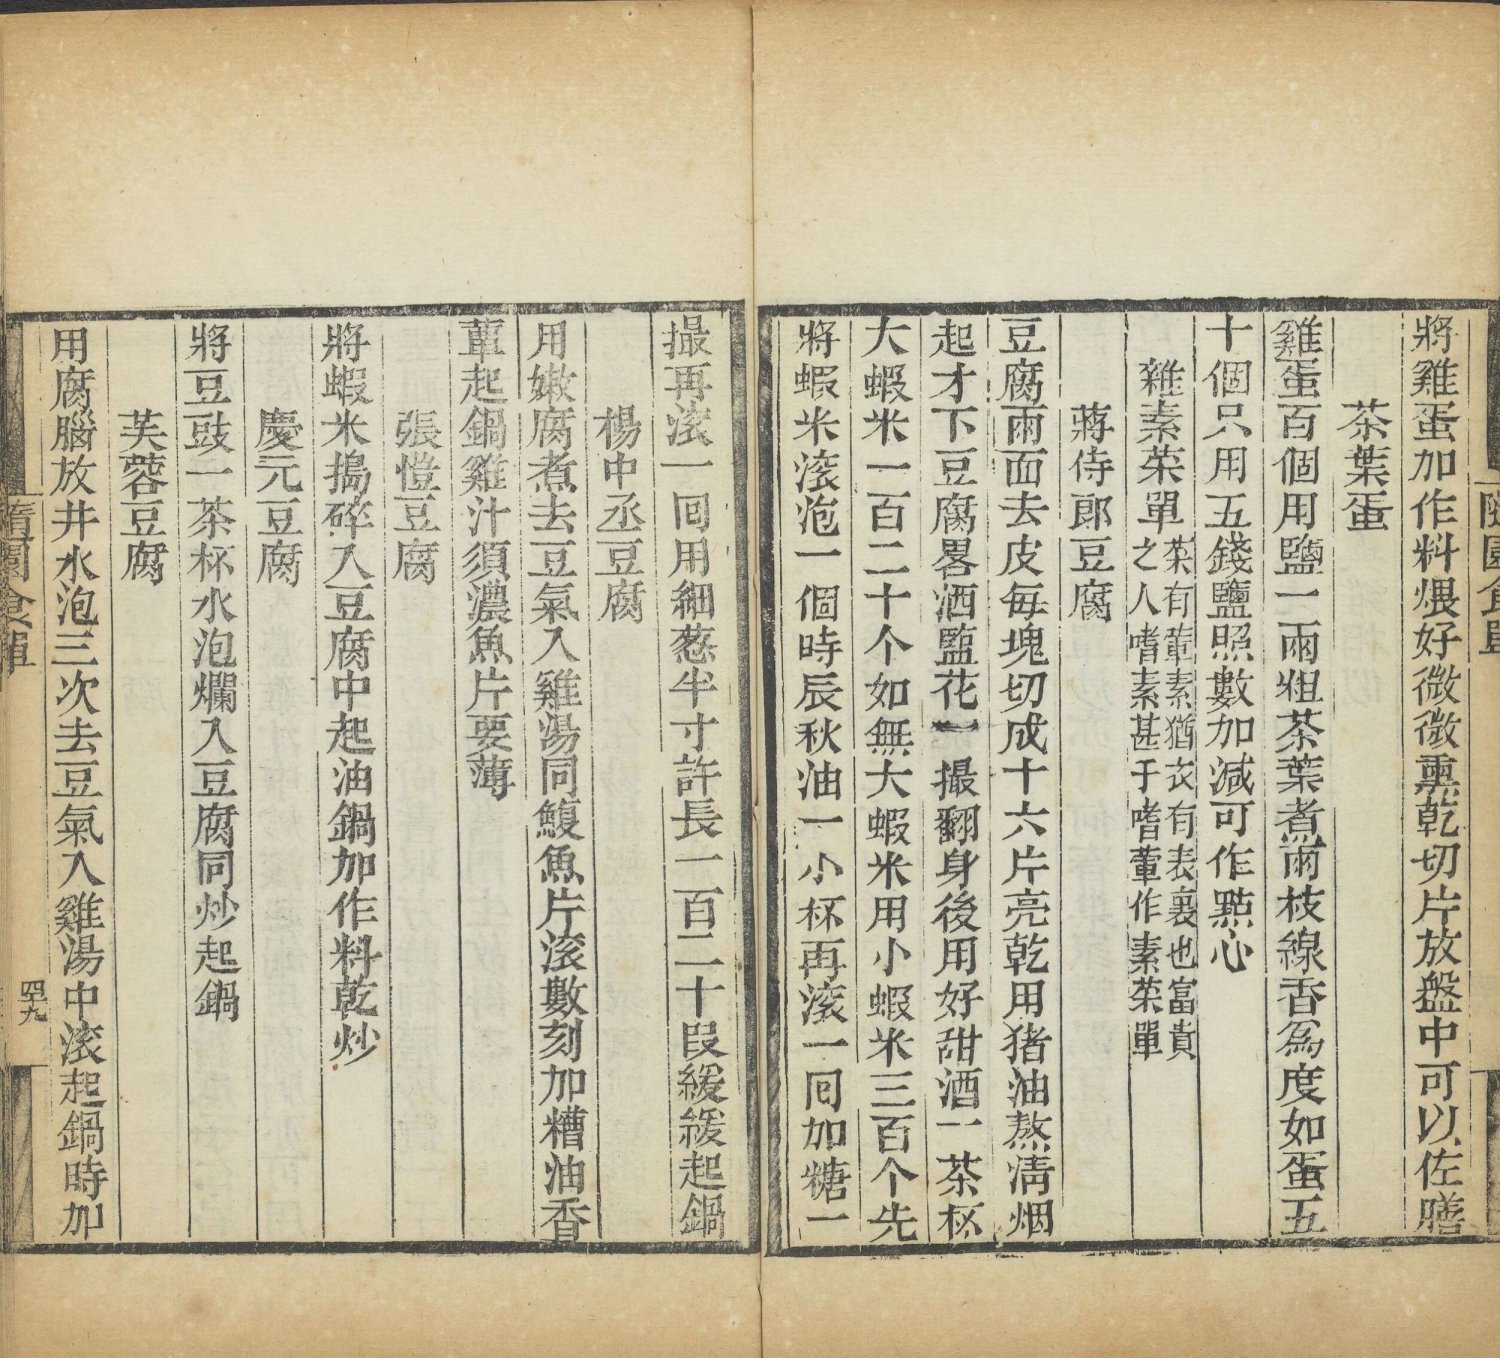 隨園食單
將雞蛋加作料煨好微微熏乾切片放盤中可以佐膳
茶葉蛋
雞蛋百個用鹽一兩粗茶葉煮兩枝線香爲度如蛋五
十個只用五錢鹽照數加減可作點心
雜素菜單菜有葷素猶衣有表裏也富貴
之人嗜素甚于嗜葷作素菜單
蔣侍郎豆腐
豆腐兩面去皮每塊切成十六片亮乾用猪油熬清烟
起才下豆腐畧洒鹽花一撮翻身後用好甜酒一茶杯
大蝦米一百二十个如無大蝦米用小蝦米三百个先
將蝦米滚泡一個時辰秋油一小杯再滚一囘加糖一
撮再滚一囘用細葱半寸許長一百二十段緩緩起鍋
楊中丞豆腐
用嫩腐煮去豆氣入雞湯同鰒魚片滚數刻加糟油香
蕈起鍋雞汁須濃魚片要薄
張愷豆腐
將蝦米搗碎入豆腐中起油鍋加作料乾炒
慶元豆腐
將豆豉一茶杯水泡爛入豆腐同炒起鍋
芙蓉豆腐
用腐腦放井水泡三次去豆氣入雞湯中滚起鍋時加
隨園食單
四九